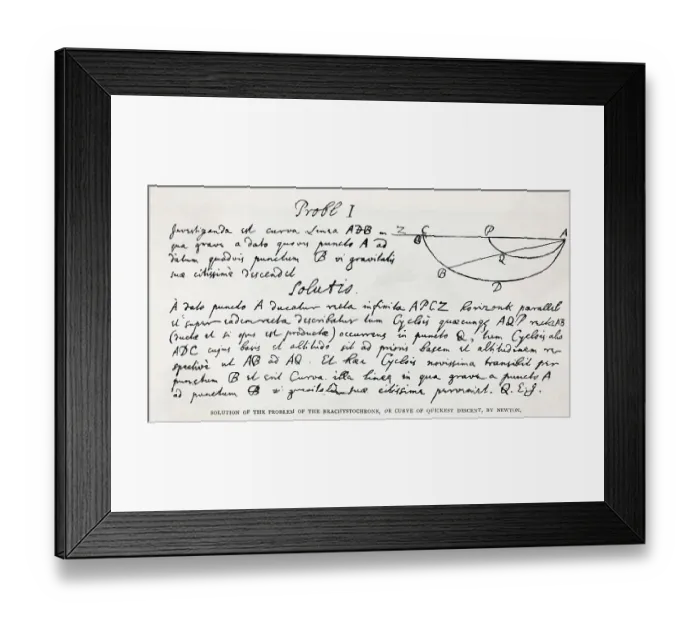 Probl I
Investiganda est curva Linea ADB
qua grave a dato quovis puncto A ad
datum quodvis punctum B vi gravitatis
suæ citissimè descendet
Z C P A
B
Q
B
D
Solutio.
A dato puncto A ducatur recta infinita APCZ horizonti parallel
et super eadem recta describatur tum Cyclois quæcunque AQP rectæ AB
(ductæ et si opus est productæ) occurrens in puncto Q, tum Cyclois alia
ADC cujus basis et altitudo sit ad prioris basem et altitudinem re-
spective ut AB ad AQ. Et hæc Cyclois novissima transibit per
punctum B et erit Curva illa linea in qua grave a puncto A
ad punctum B vi gravitatis suæ citissime perveniet. Q.E.I.
SOLUTION OF THE PROBLEM OF THE BRACHYSTOCHRONE, OR CURVE OF QUICKEST DESCENT, BY NEWTON.